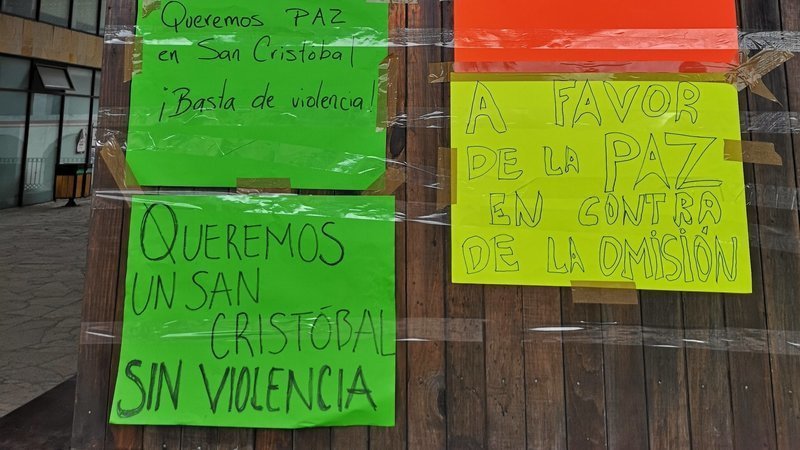 Queremos PAZ
en San Cristóbal
¡Basta de violencia!
QUEREMOS
UN SAN
CRISTÓBAL
SIN VIOLENCIA
A FAVOR
DE LA PAZ
EN CONTRA
DE LA OMISIÓN